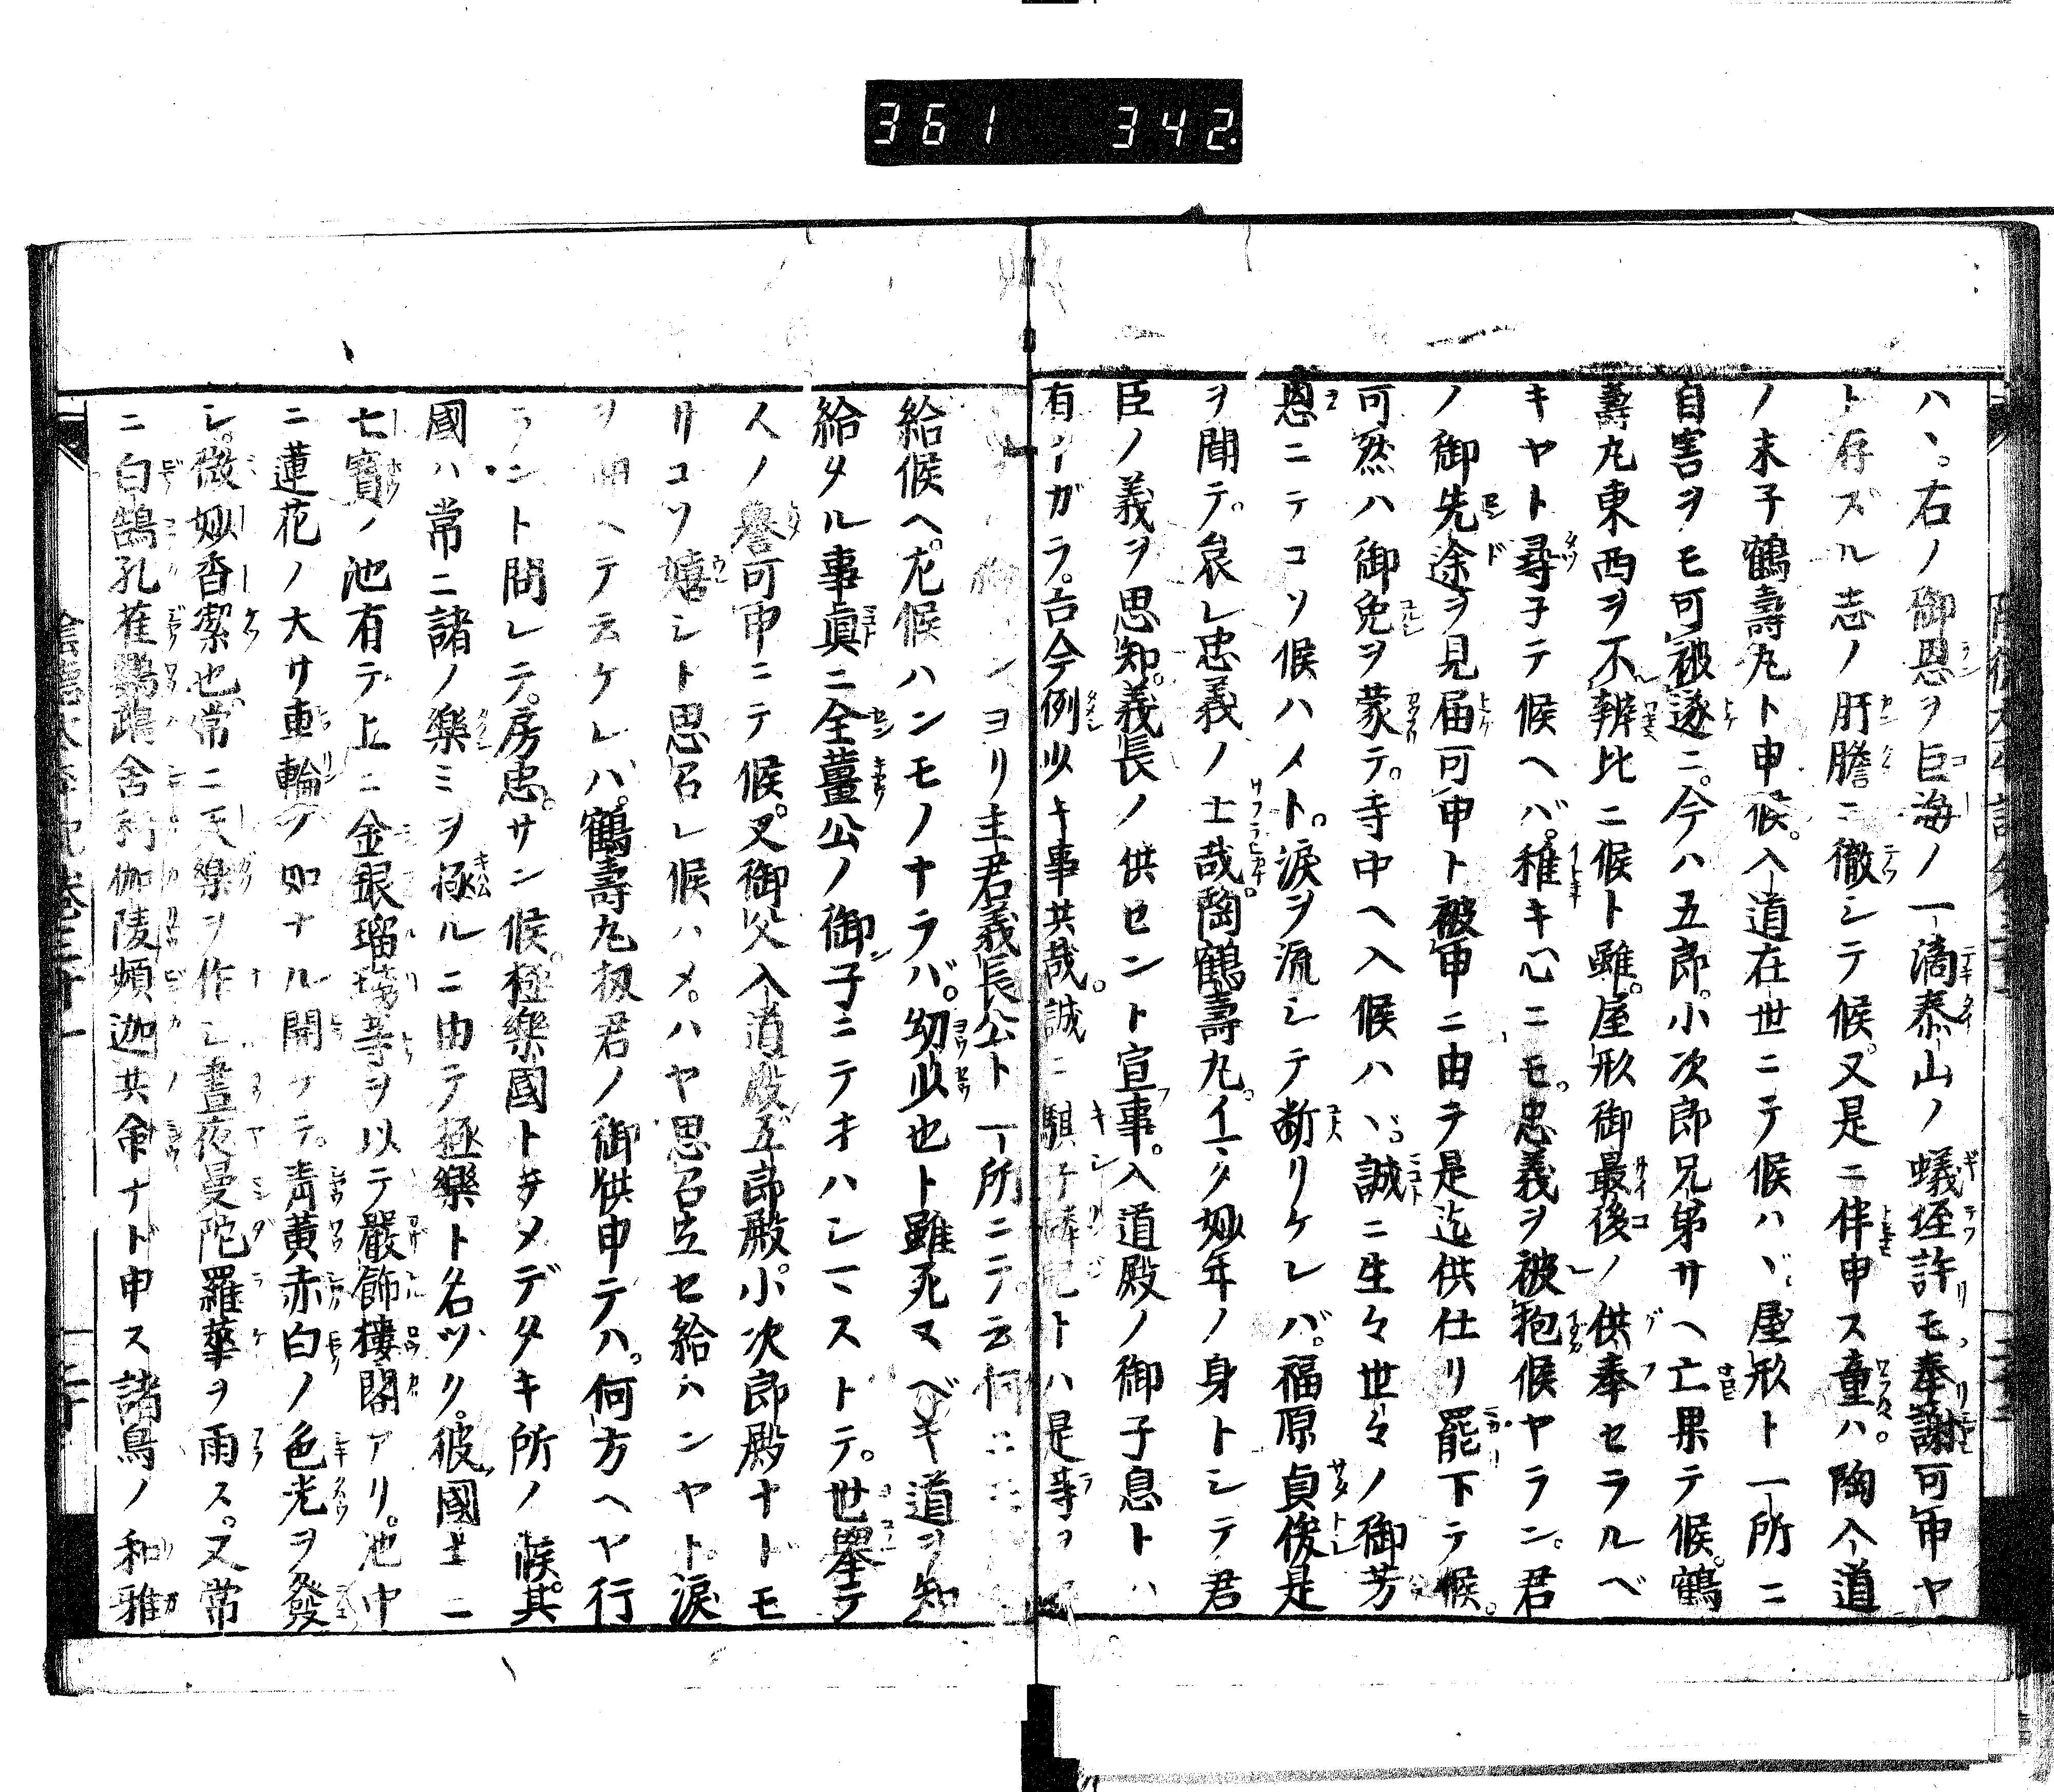 361 342
ハヽ。右ノ御恩ヲ巨海ノ一滴泰山ノ蟻垤許モ奉謝可申ヤ
ト存ズル志ノ肝膽ニ徹シテ候。又是ニ伴申ス童ハ。陶入道
ノ末子鶴壽丸ト申候。入道在世ニテ候ハヾ屋形ト一所ニ
自害ヲモ可被遂ニ。今ハ五郎。小次郎兄弟サヘ亡果テ候。鶴
壽丸東西ヲ不辨比ニ候ト雖。屋形御最後ノ供奉セラルベ
キヤト尋子テ候ヘバ。稚キ心ニモ。忠義ヲ被抱候ヤラン。君
ノ御先途ヲ見届可申ト被申ニ由ラ是迄供仕リ罷下テ候。
可然ハ御免ヲ蒙テ。寺中ヘ入候ハヾ。誠ニ生々世々ノ御芳
恩ニテコソ候ハメト。涙ヲ流シテ断リケレバ。福原貞俊是
ヲ聞テ。哀レ忠義ノ士哉。陶鶴壽丸。イマタ妙年ノ身トシテ君
臣ノ義ヲ思知。義長ノ供セント宣事。入道殿ノ御子息トハ
有ナガラ。古今例少キ事共哉。誠ニ騏子麟兒トハ是等ヲ
ヨリ主君義長公ト一所ニテ云何ニモ
給候ヘ。尤候ハンモノナラバ。幼少也ト雖死スベキ道ヲ知
給タル事眞ニ全薑公ノ御子ニテオハシマストテ。世擧テ
人ノ譽可申ニテ候。又御父入道殿五郎殿。小次郎殿ナドモ
リコソ嬉シト思召レ候ハメ。ハヤ思召立セ給ハンヤト。涙
ヲ押ヘテ云ケレハ。鶴壽丸扨君ノ御供申テハ。何方ヘヤ行
ラント問レテ。房忠。サン候。極樂國トテメデタキ所ノ候。其
國ハ常ニ諸ノ樂ミヲ極ルニ由テ極樂ト名ヅク。彼國土ニ
七寳ノ池有テ上ニ金銀瑠璃等ヲ以テ嚴飾樓閣アリ。池中
ニ蓮花ノ大サ車輪ノ如ナル開ケテ。青黄赤白ノ色光ヲ發
シ。微妙香潔也。常ニ天樂ヲ作シ晝夜曼陀羅華ヲ雨ス。又常
ニ白鵠孔雀鸚鵡舍利伽陵頻迦共命ナド申ス諸鳥ノ和雅